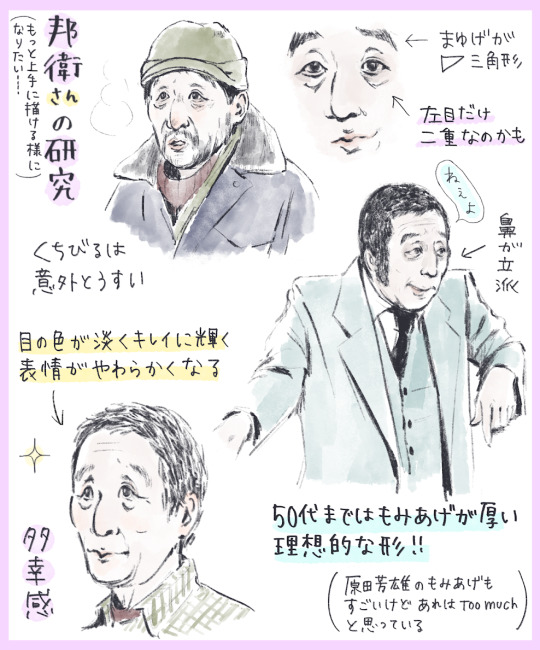 邦衛さんの研究
(もっと上手に描ける様に
なりたい…)
まゆげが
三角形
左目だけ
二重なのかも
ねぇよ
鼻が立派
くちびるは
意外とうすい
目の色が淡くキレイに輝く
表情がやわらかくなる
多幸感
50代まではもみあげが厚い
理想的な形!!
(原田芳雄のもみあげも
すごいけど あれは Too much
と思っている)